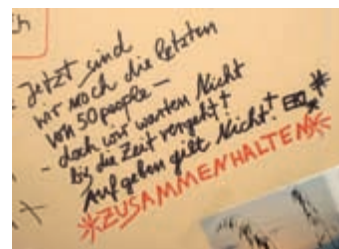 ch
Jetzt sind
wir noch die letzten
von 50 people –
– doch wir warten Nicht
bis die Zeit vergeht†
Aufgeben gilt Nicht!
*ZUSAMMENHALTEN*